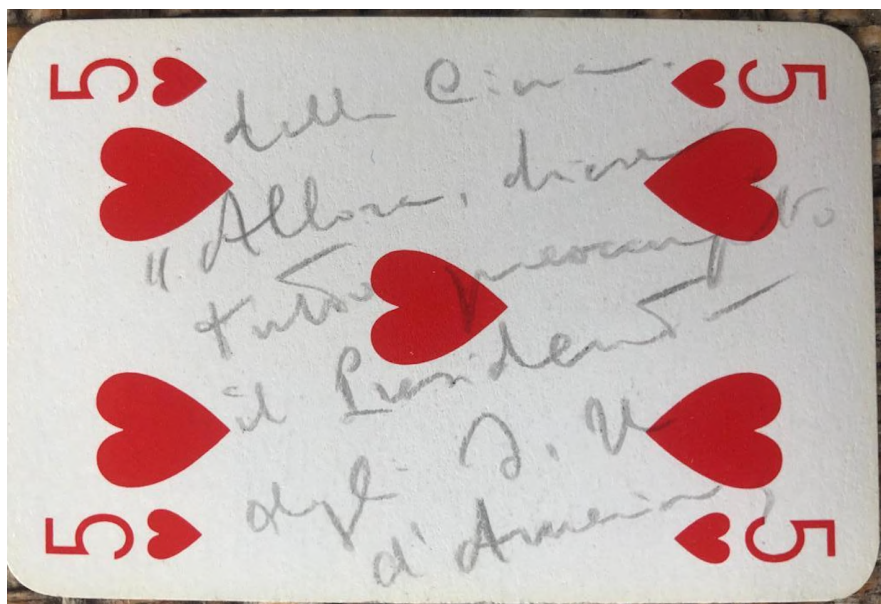 5 5
della Cina.
"Allora, dice
tutto preoccupato
il Presidente
degli S. U.
d'America,
5 5